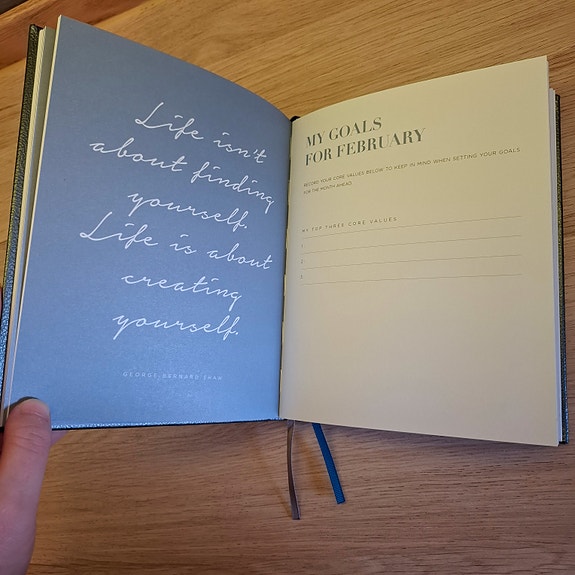 Life isn't
about finding
yourself.
Life is about
creating
yourself.
GEORGE BERNARD SHAW
MY GOALS
FOR FEBRUARY
RECORD YOUR CORE VALUES BELOW TO KEEP IN MIND WHEN SETTING YOUR GOALS
FOR THE MONTH AHEAD.
MY TOP THREE CORE VALUES
1.
2.
3.